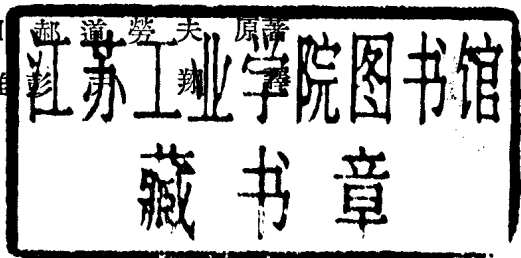 郝道勞夫 原著
江苏工业学院图书馆
藏书章